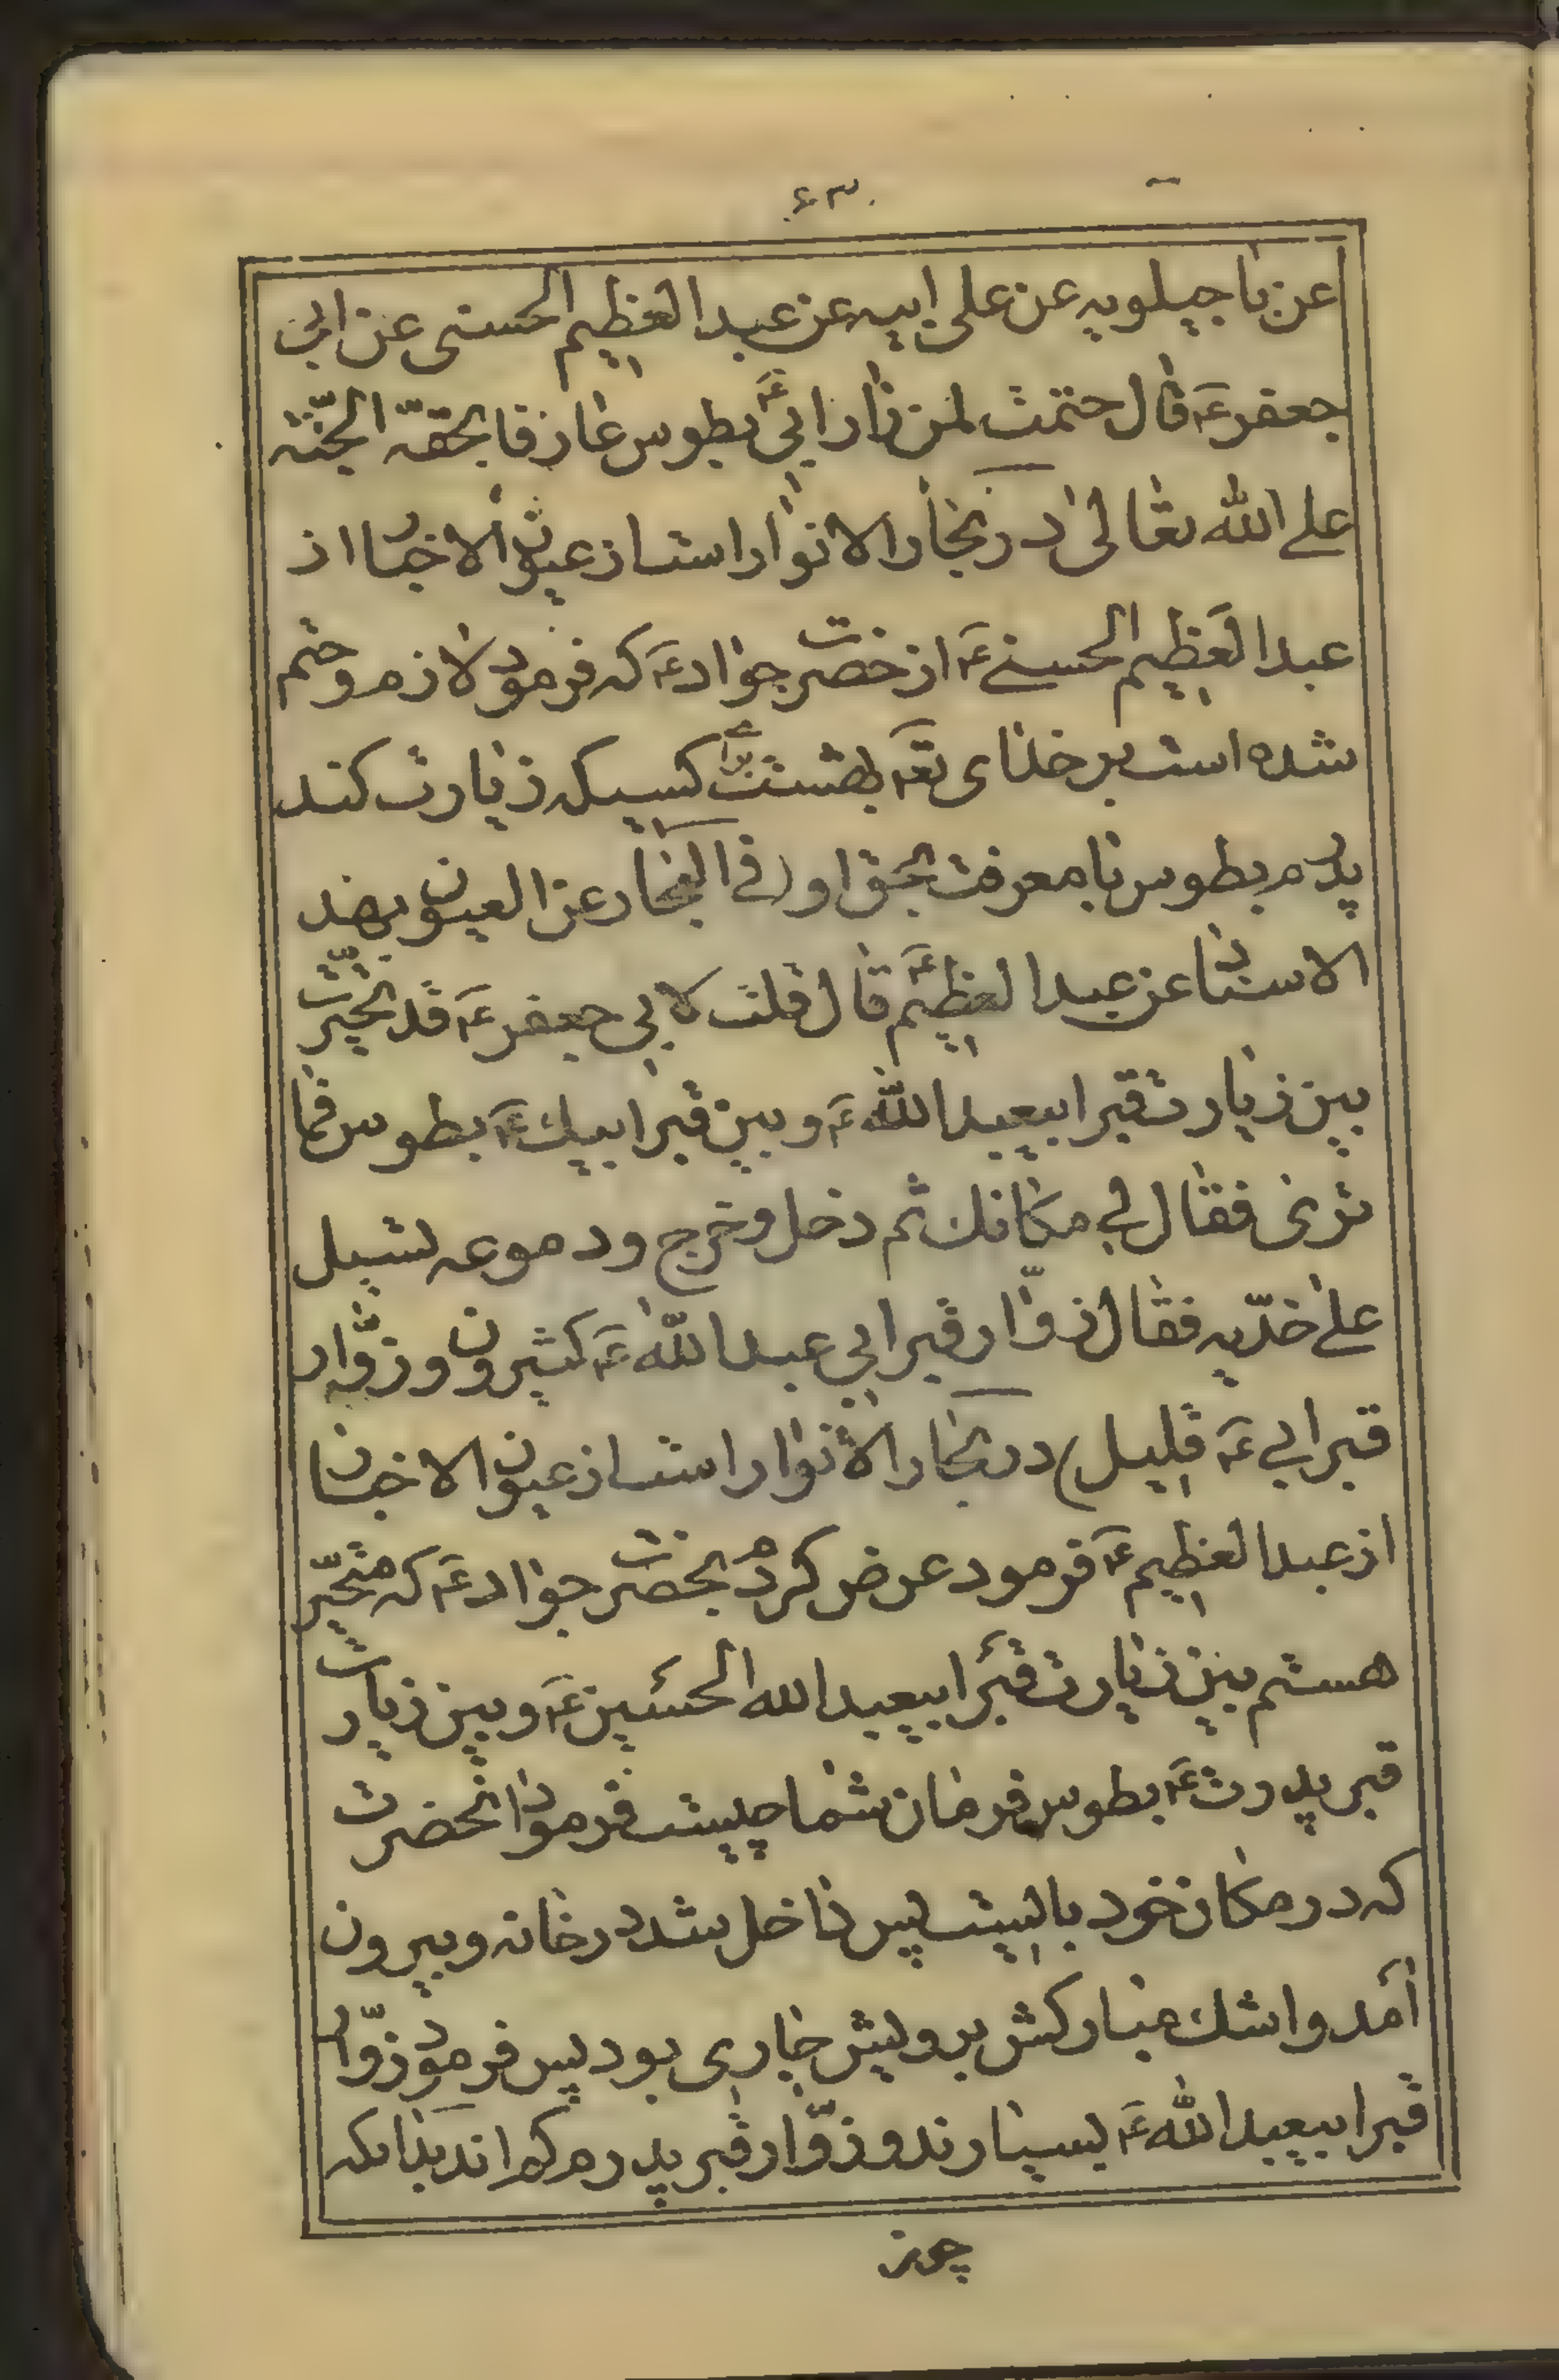 ۶۳
عن ماجیلویه عن علی ابیه عن عبد العظیم الحسنی عن ابی
جعفر عَ قال حتمت لمن زار ابی عَ بطوس عارفا بحقّه الجنّة
علی الله تعالیٰ در بحار الانوار است از عیون الاخبار از
عبد العظیم الحسنی عَ از حضرت جواد عَ که فرمود لازم و حتم
شده است بر خدای تعَ بهشت برای کسیکه زیارت کند
پدرم بطوس با معرفت بحق او (فی البحار عن العیون بهذ
الاسناد عن عبد العظیم عَ قال قلت لابی جعفر عَ قد تحیّرت
بین زیارت قبر ابیعبد اللّه عَ و بین قبر ابیک عَ بطوس فما
تری فقال لی مکانک ثم دخل و خرج و دموعه تسیل
علیٰ خدّیه فقال زوّار قبر ابی عبد اللّه عَ کثیرون و زوّار
قبر ابی عَ قلیل) در بحار الانوار است از عیون الاخبار
از عبد العظیم عَ فرمود عرض کردم بحضرت جواد عَ که متحیّر
هستم بین زیارت قبر ابیعبد الله الحسین عَ و بین زیارت
قبر پدرت عَ بطوس فرمان شما چیست فرمود انحضرت
که در مکان خود بایست پس داخل شد در خانه و بیرون
آمد و اشک مبارکش برویش جاری بود پس فرمود زوّار
قبر ابیعبد اللّه عَ بسیارند و زوّار قبر پدرم کم اند بدانکه
چون